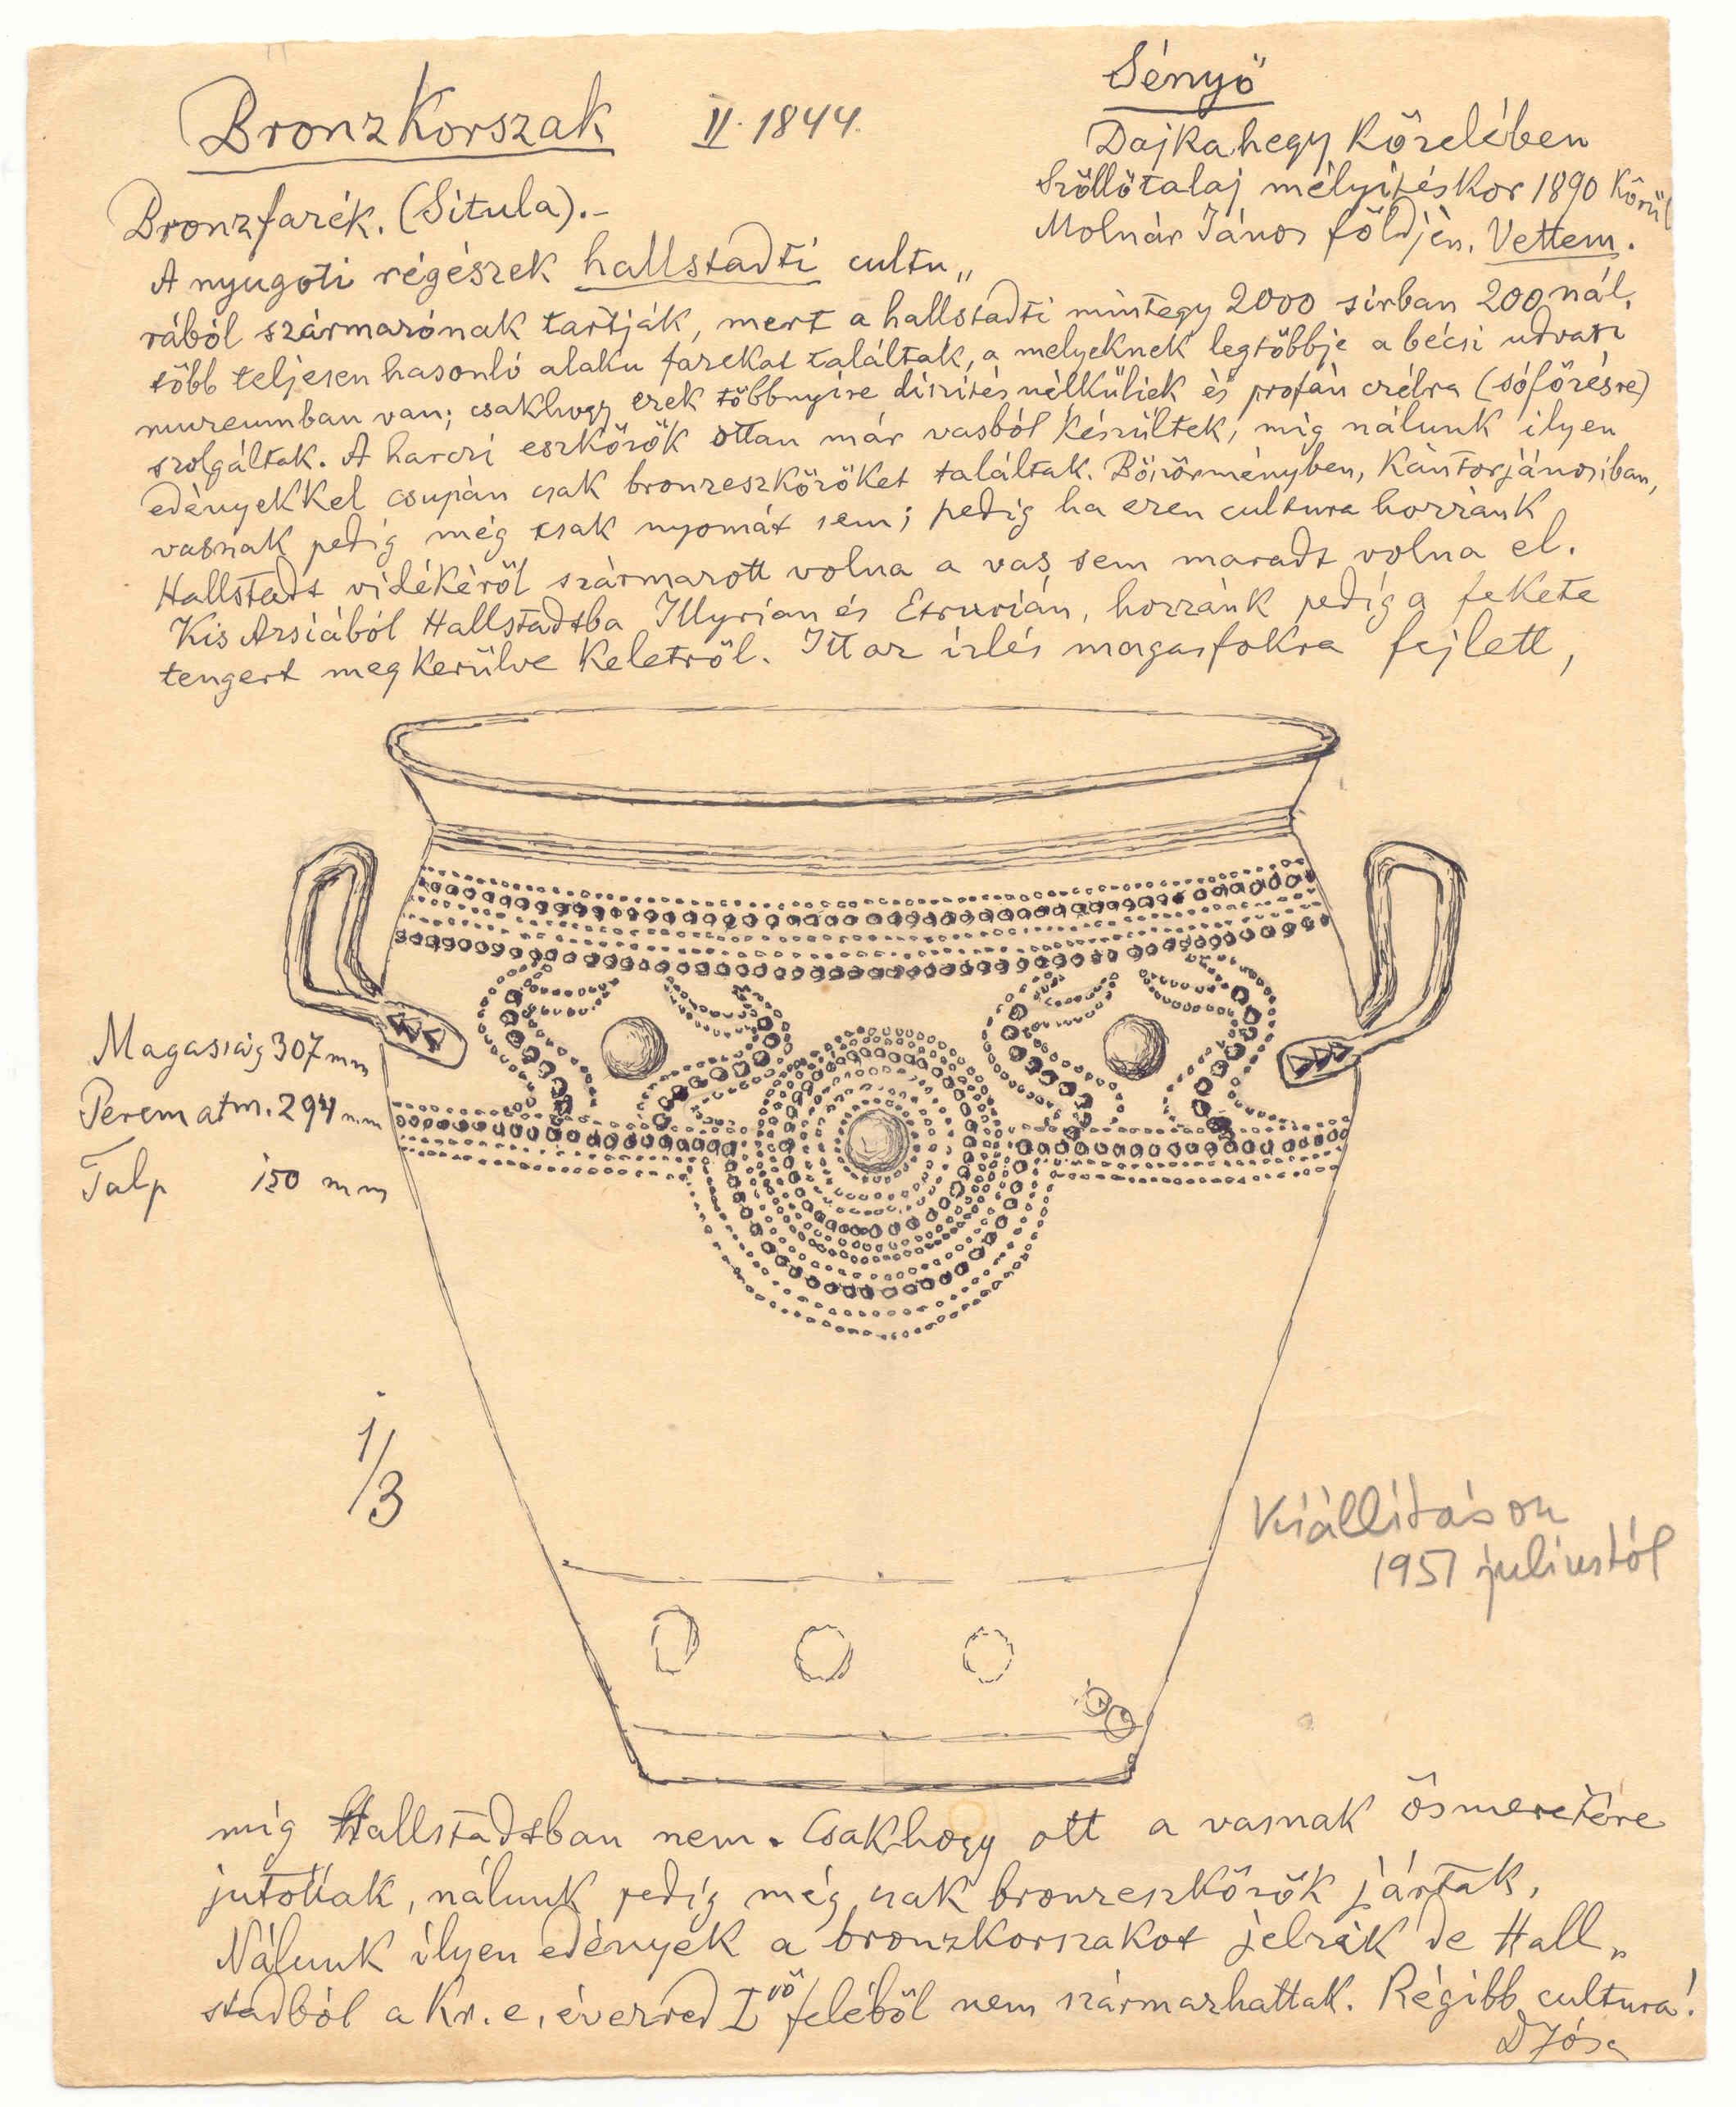 Bronzkorszak II. 1844.
Sényő
Dajkahegy közelében
Szőllőtalaj mélyitéskor 1890 körül
Molnár János földjén. Vettem.
Bronzfazék. (Situla).-
A nyugoti régészek hallstadti cultu„
rából származónak tartják, mert a hallstadti mintegy 2000 sirban 200nál
több teljesen hasonló alaku fazekat találtak, a melyeknek legtöbbje a bécsi udvari
muzeumban van; csakhogy ezek többnyire diszités nélküliek és profán czélra (sófőzésre)
szolgáltak. A harczi eszközök ottan már vasból készültek, mig nálunk ilyen
edényekkel csupán csak bronzeszközöket találtak. Böszörményben, Kántorjánosiban,
vasnak pedig még csak nyomát sem; pedig ha ezen cultura hozzánk
Hallstadt vidékéről származott volna a vas sem maradt volna el.
Kis Azsiából Hallstadtba Illyrian és Etrurián, hozzánk pedig a fekete
tengert megkerülve keletről. Itt az izlés magasfokra fejlett,
Magasság 307 mm
Perem átm. 294 mm
Talp 150 mm
1/3
Kiállitáson
1951 juliustól
mig Hallstadtban nem. Csakhogy ott a vasnak ősmeretére
jutottak, nálunk pedig még csak bronzeszközök jártak.
Nálunk ilyen edények a bronzkorszakot jelzik de Hall„
stadból a Kr. e. évezred I ső feléből nem származhattak. Régibb cultura!
D Jósa